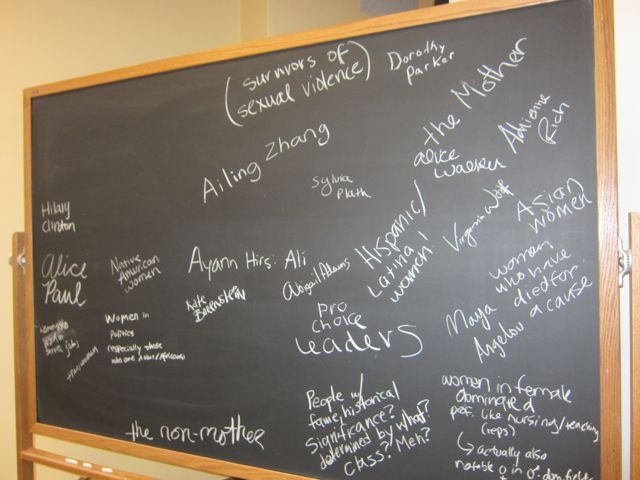 (survivors of
sexual violence)
Dorothy
Parker
the Mother
Adrienne
Rich
Alice
Walker
Ailing Zhang
Sylvia
Plath
Hilary
Clinton
Hispanic/
Latina
women!
Virginia Woolf
Asian
women
Alice
Paul
Native
American
women
Ayann Hirsi Ali
Abigail Adams
women
who have
died for
a cause
Kate
Bornstein
pro
choice
Leaders
Maya
Angelou
Women in
politics
(especially those
who are
jobs)
transwomen
the non-mother
People w/
fame, historical
significance?
determined by what?
Class? Meh?
women in female
dominated
prof. like nursing/teaching
(reps)
↳ actually also
notable ♀ in ♂ dom. fields